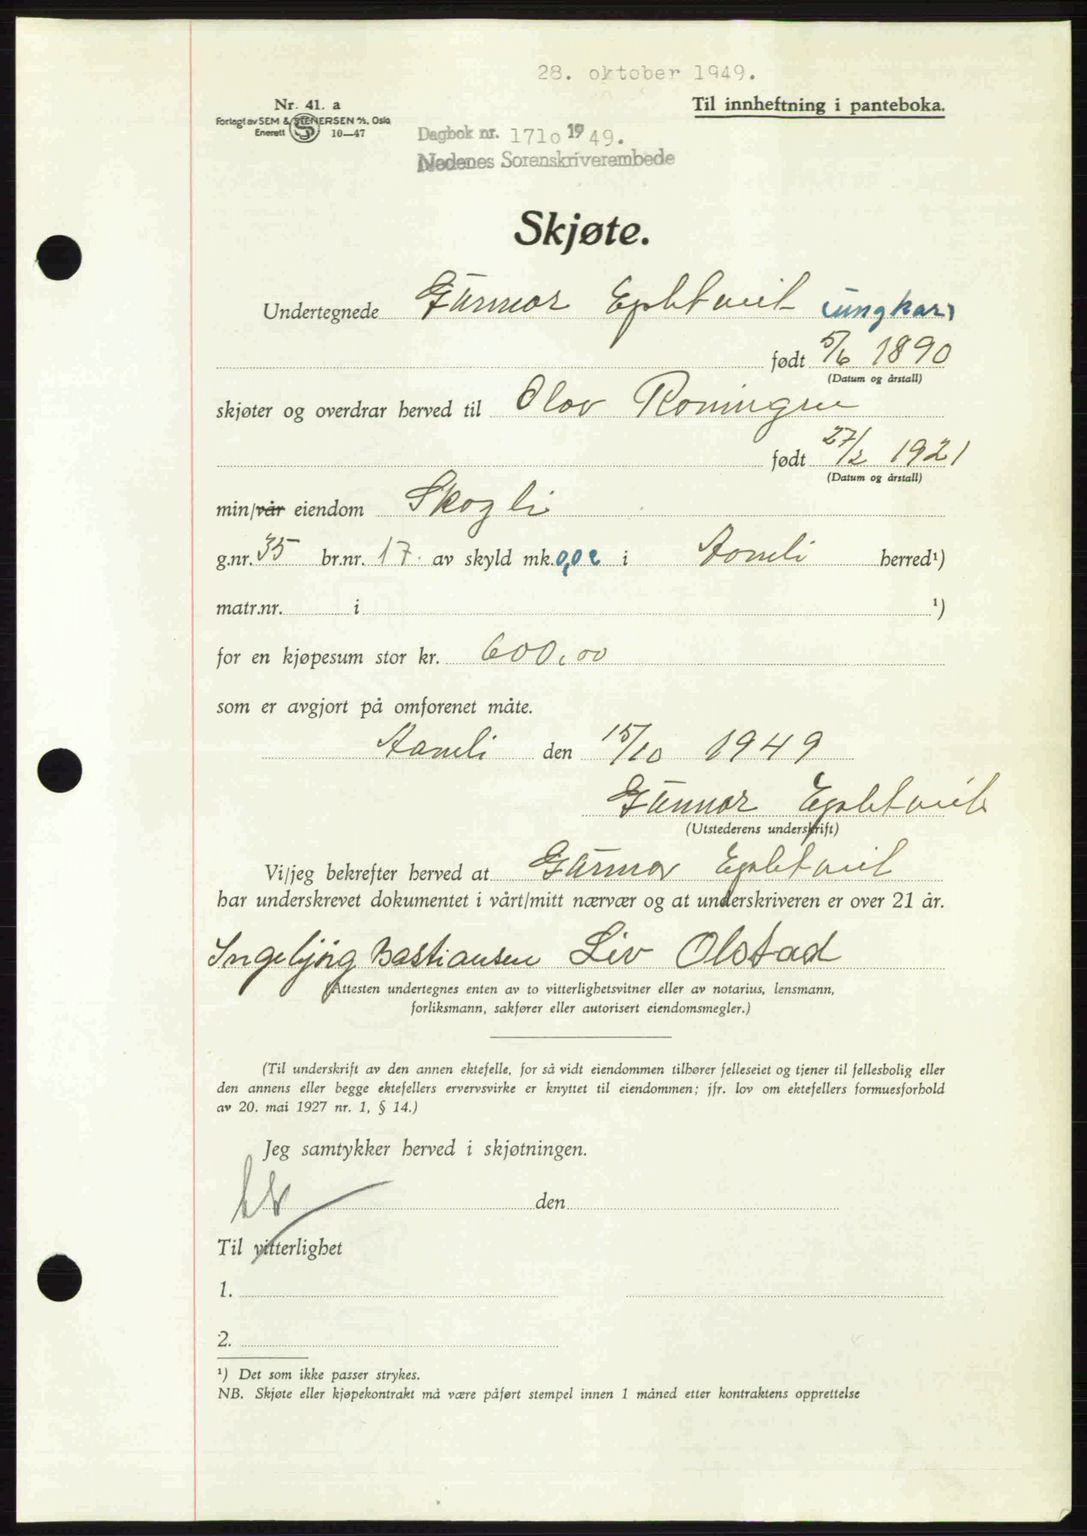 28. oktober 1949.
Nr. 41. a
Til innheftning i panteboka.
Forlagt av SEM & STENERSEN A/S, Oslo
Enerett 10—47
Dagbok nr. 1710 1949.
Nedenes Sorenskriverembede
Skjøte.
Undertegnede Gunnar Epletveit (ungkar)
født 5/6 1890
(Datum og årstall)
skjøter og overdrar herved til Olav Roningen
født 27/2 1921
(Datum og årstall)
min/vår eiendom Skogli
g.nr. 35 br.nr. 17. av skyld mk. 0,02 i Aamli herred¹)
matr.nr. i ¹)
for en kjøpesum stor kr. 600,00
som er avgjort på omforenet måte.
Aamli den 15/10 1949
Gunnar Epletveit
(Utstederens underskrift)
Vi/jeg bekrefter herved at Gunnar Epletveit
har underskrevet dokumentet i vårt/mitt nærvær og at underskriveren er over 21 år.
Ingebjørg Bastiansen Liv Olstad
(Attesten undertegnes enten av to vitterlighetsvitner eller av notarius, lensmann,
forliksmann, sakfører eller autorisert eiendomsmegler.)
(Til underskrift av den annen ektefelle, for så vidt eiendommen tilhører felleseiet og tjener til fellesbolig eller
den annens eller begge ektefellers ervervsvirke er knyttet til eiendommen; jfr. lov om ektefellers formuesforhold
av 20. mai 1927 nr. 1, § 14.)
Jeg samtykker herved i skjøtningen.
den
Til vitterlighet
1.
2.
¹) Det som ikke passer strykes.
NB. Skjøte eller kjøpekontrakt må være påført stempel innen 1 måned etter kontraktens opprettelse